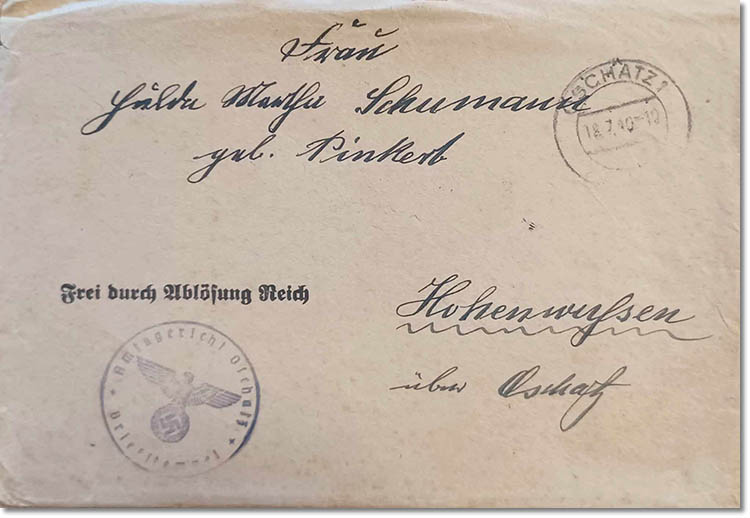 Frau
Hulda Martha Schumann
geb. Pinkert
OSCHATZ 1
18.7.40.-10
Frei durch Ablösung Reich
Hohenwussen
über Oschatz
Amtsgericht Oschatz
Briefstempel